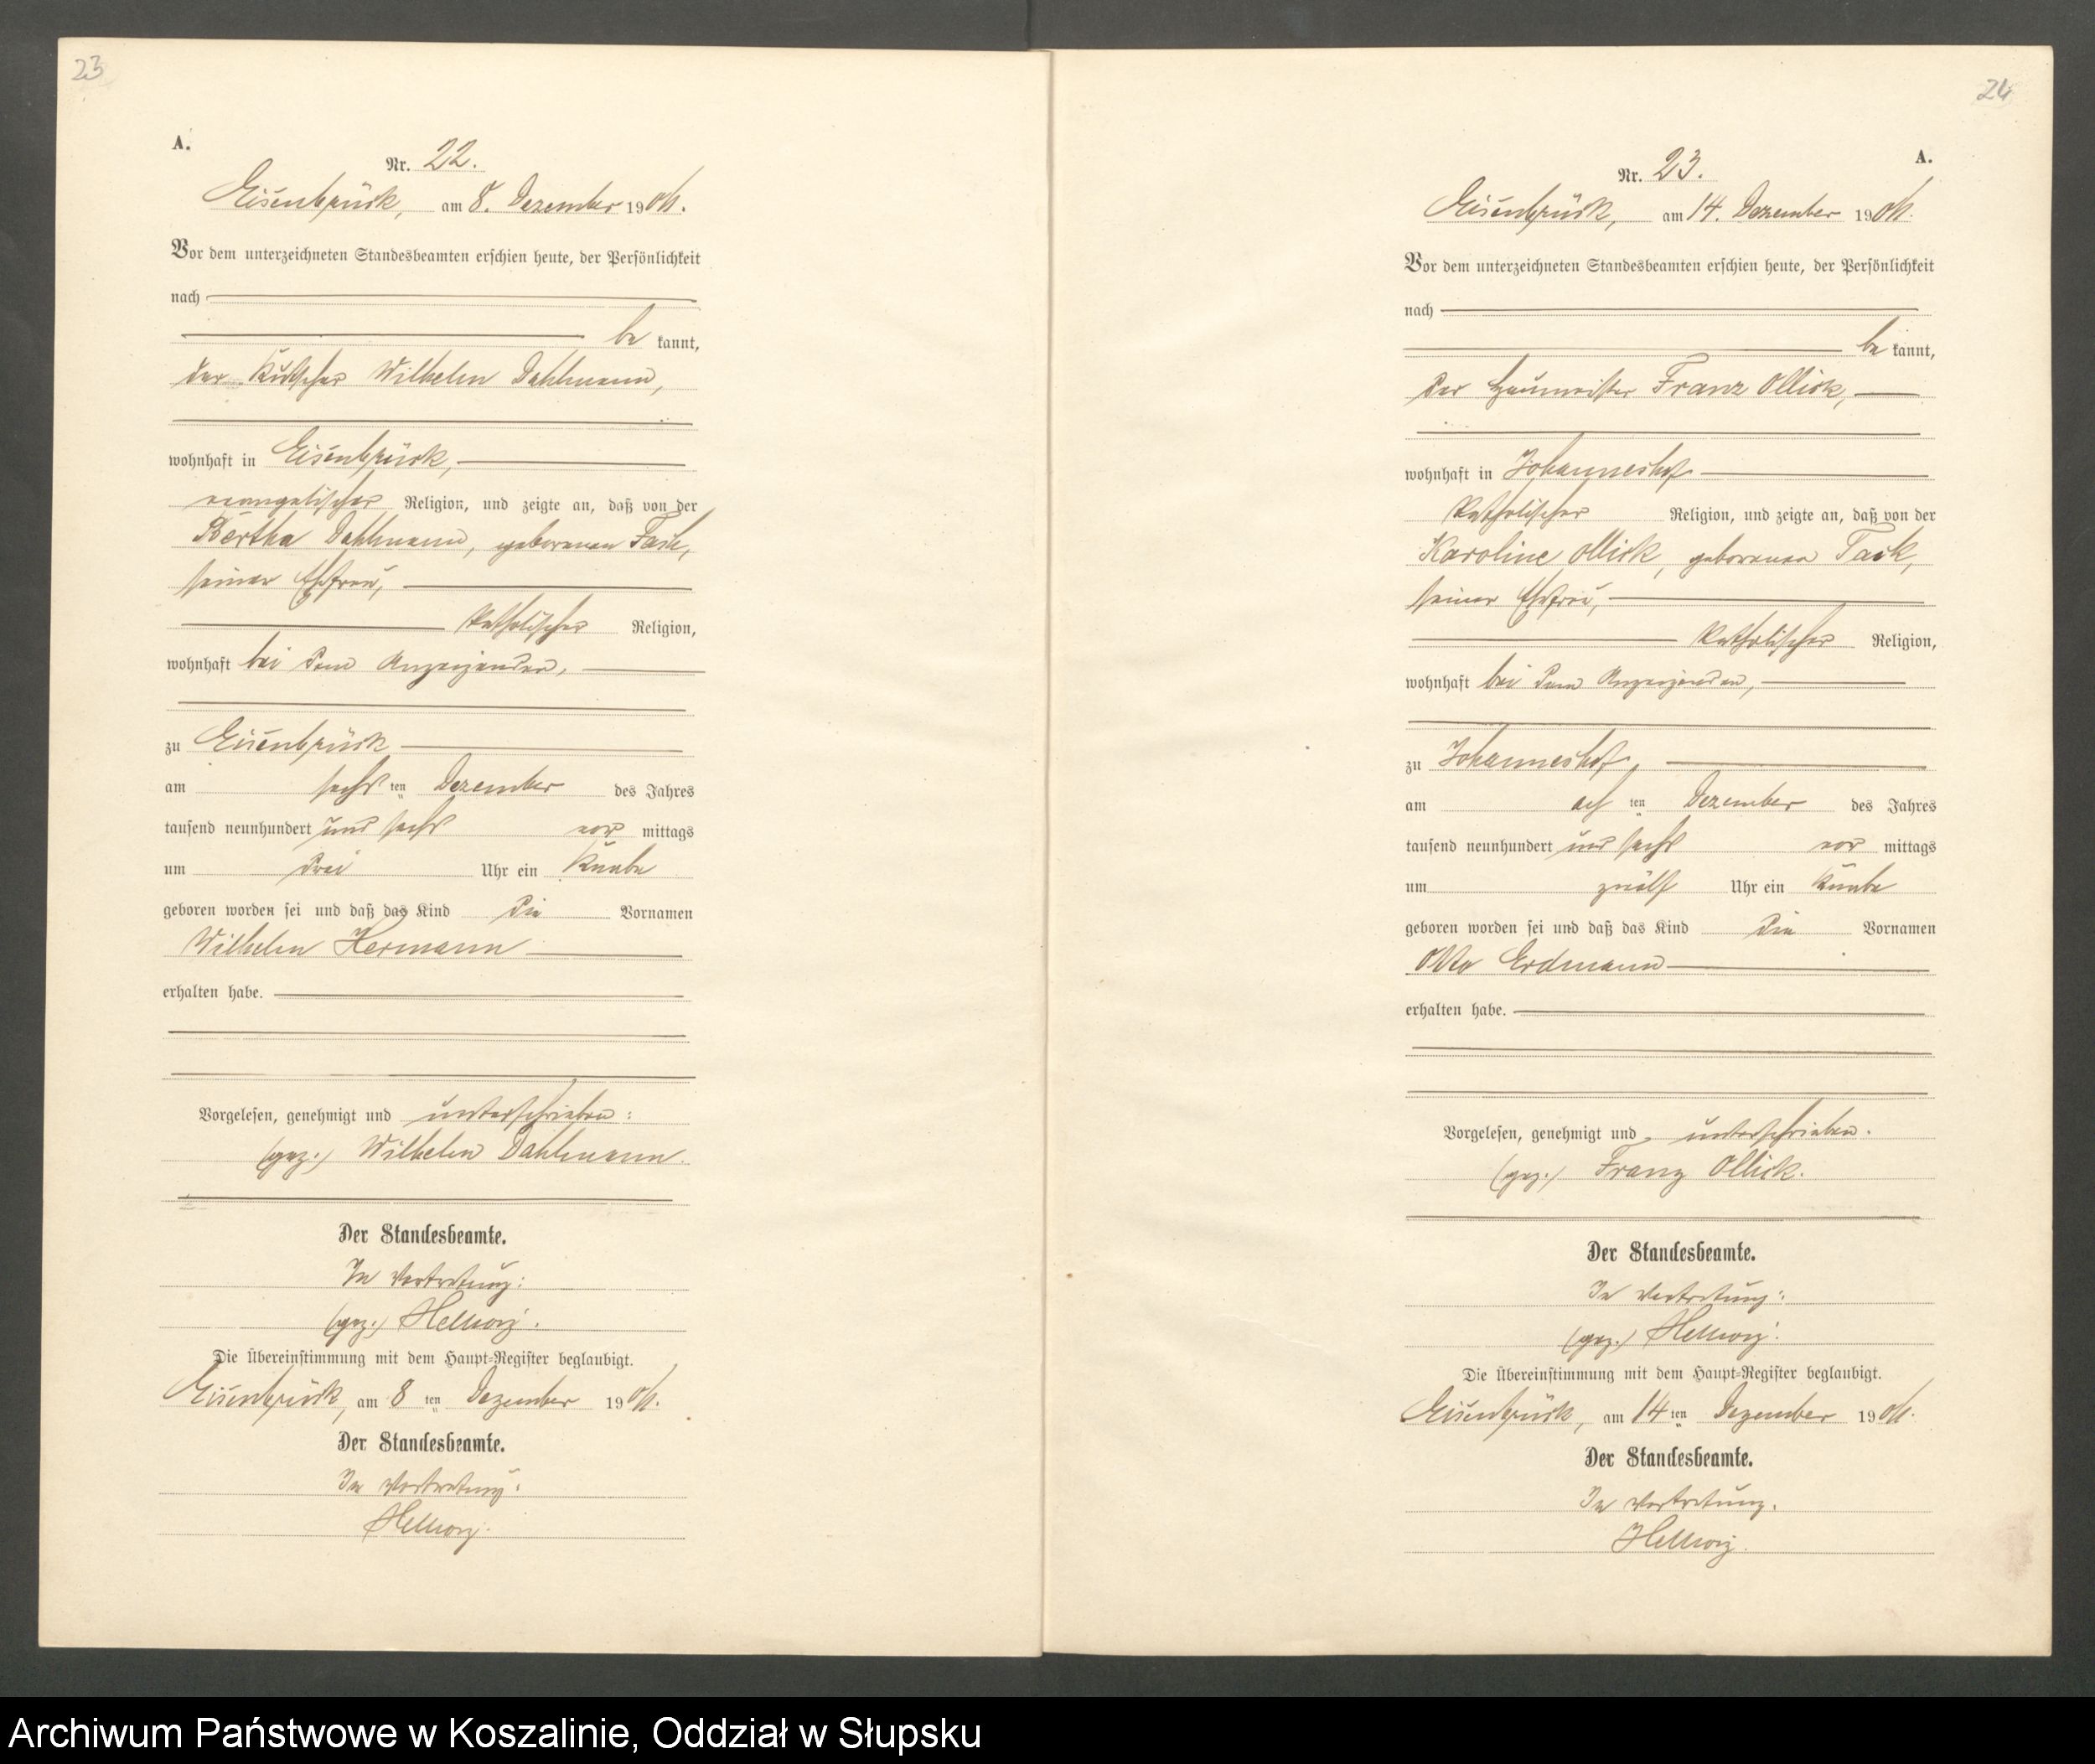 23
A.
Nr. 22.
Eisenbrück, am 8. Dezember 1906.
Vor dem unterzeichneten Standesbeamten erschien heute, der Persönlichkeit
nach
be kannt,
der Kutscher Wilhelm Dahlmann,
wohnhaft in Eisenbrück,
evangelischer Religion, und zeigte an, daß von der
Bertha Dahlmann, geborenen Tack,
seiner Ehefrau,
katholischer Religion,
wohnhaft bei dem Anzeigenden,
zu Eisenbrück
am sechsten Dezember des Jahres
tausend neunhundert und sechs vor mittags
um drei Uhr ein Knabe
geboren worden sei und daß das Kind die Vornamen
Wilhelm Hermann
erhalten habe.
Vorgelesen, genehmigt und unterschrieben:
(gez.) Wilhelm Dahlmann.
Der Standesbeamte.
In Vertretung:
(gez.) Hellwig.
Die Übereinstimmung mit dem Haupt-Register beglaubigt.
Eisenbrück, am 8 ten Dezember 1906.
Der Standesbeamte.
In Vertretung:
Hellwig.
24
A.
Nr. 23.
Eisenbrück, am 14. Dezember 1906.
Vor dem unterzeichneten Standesbeamten erschien heute, der Persönlichkeit
nach
be kannt,
der Haumeister Franz Ollick,
wohnhaft in Johanneshof
katholischer Religion, und zeigte an, daß von der
Karoline Ollick, geborenen Tack,
seiner Ehefrau,
katholischer Religion,
wohnhaft bei dem Anzeigenden,
zu Johanneshof,
am ach ten Dezember des Jahres
tausend neunhundert und sechs vor mittags
um zwölf Uhr ein Knabe
geboren worden sei und daß das Kind die Vornamen
Otto Erdmann
erhalten habe.
Vorgelesen, genehmigt und unterschrieben.
(gez.) Franz Ollick.
Der Standesbeamte.
In Vertretung:
(gez.) Hellwig.
Die Übereinstimmung mit dem Haupt-Register beglaubigt.
Eisenbrück, am 14 ten Dezember 1906.
Der Standesbeamte.
In Vertretung.
Hellwig.
Archiwum Państwowe w Koszalinie, Oddział w Słupsku